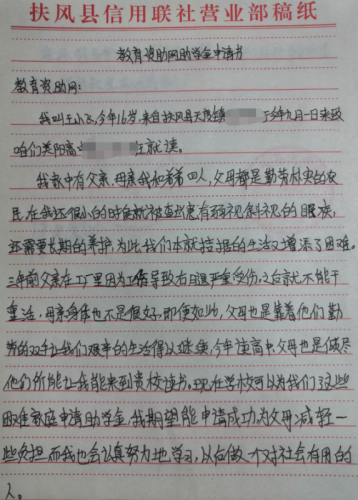 扶风县信用联社营业部稿纸
教育资助网助学金申请书
教育资助网:
我叫王小飞,今年16岁,来自扶风县天度镇 于今年九月一日来致
咱们美阳高 在就读。
我家中有父亲、母亲、我和爷爷四人,父母都是勤劳朴实的农
民,在我还很小的时候就被查出患有弱视、斜视的眼疾,
还需要长期的养护,为此我们本就拮据的生活又增添了困难。
三年前父亲在工厂里因为工伤导致右腿严重受伤,之后就不能干
重活,母亲身体也不是很好,即便如此,父母也是靠着他们勤
劳的双手让我们艰辛的生活得以延续,今年读高中,父母也是倾尽
他们所能让我能来到贵校读书。现在学校可以为我们这些
困难家庭申请助学金,我期望能申请成功,为父母减轻一
些负担,而我也会认真努力地学习,以后做一个对社会有用的
人。